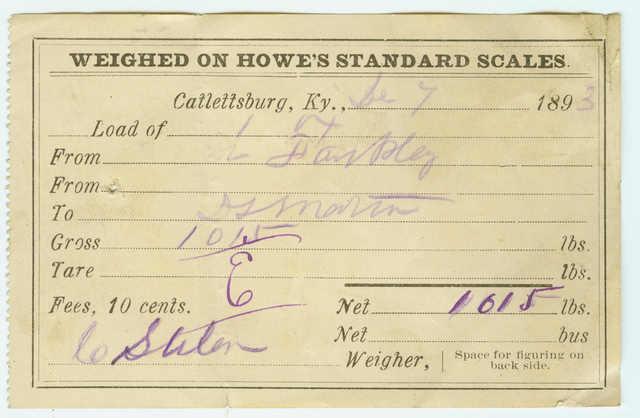 WEIGHED ON HOWE'S STANDARD SCALES.
Catlettsburg, Ky., De 7 1893
Load of
From
From
To Martin
Gross 1015 lbs.
Tare lbs.
Fees, 10 cents. Net 1015 lbs.
Net bus
Weigher, Space for figuring on back side.